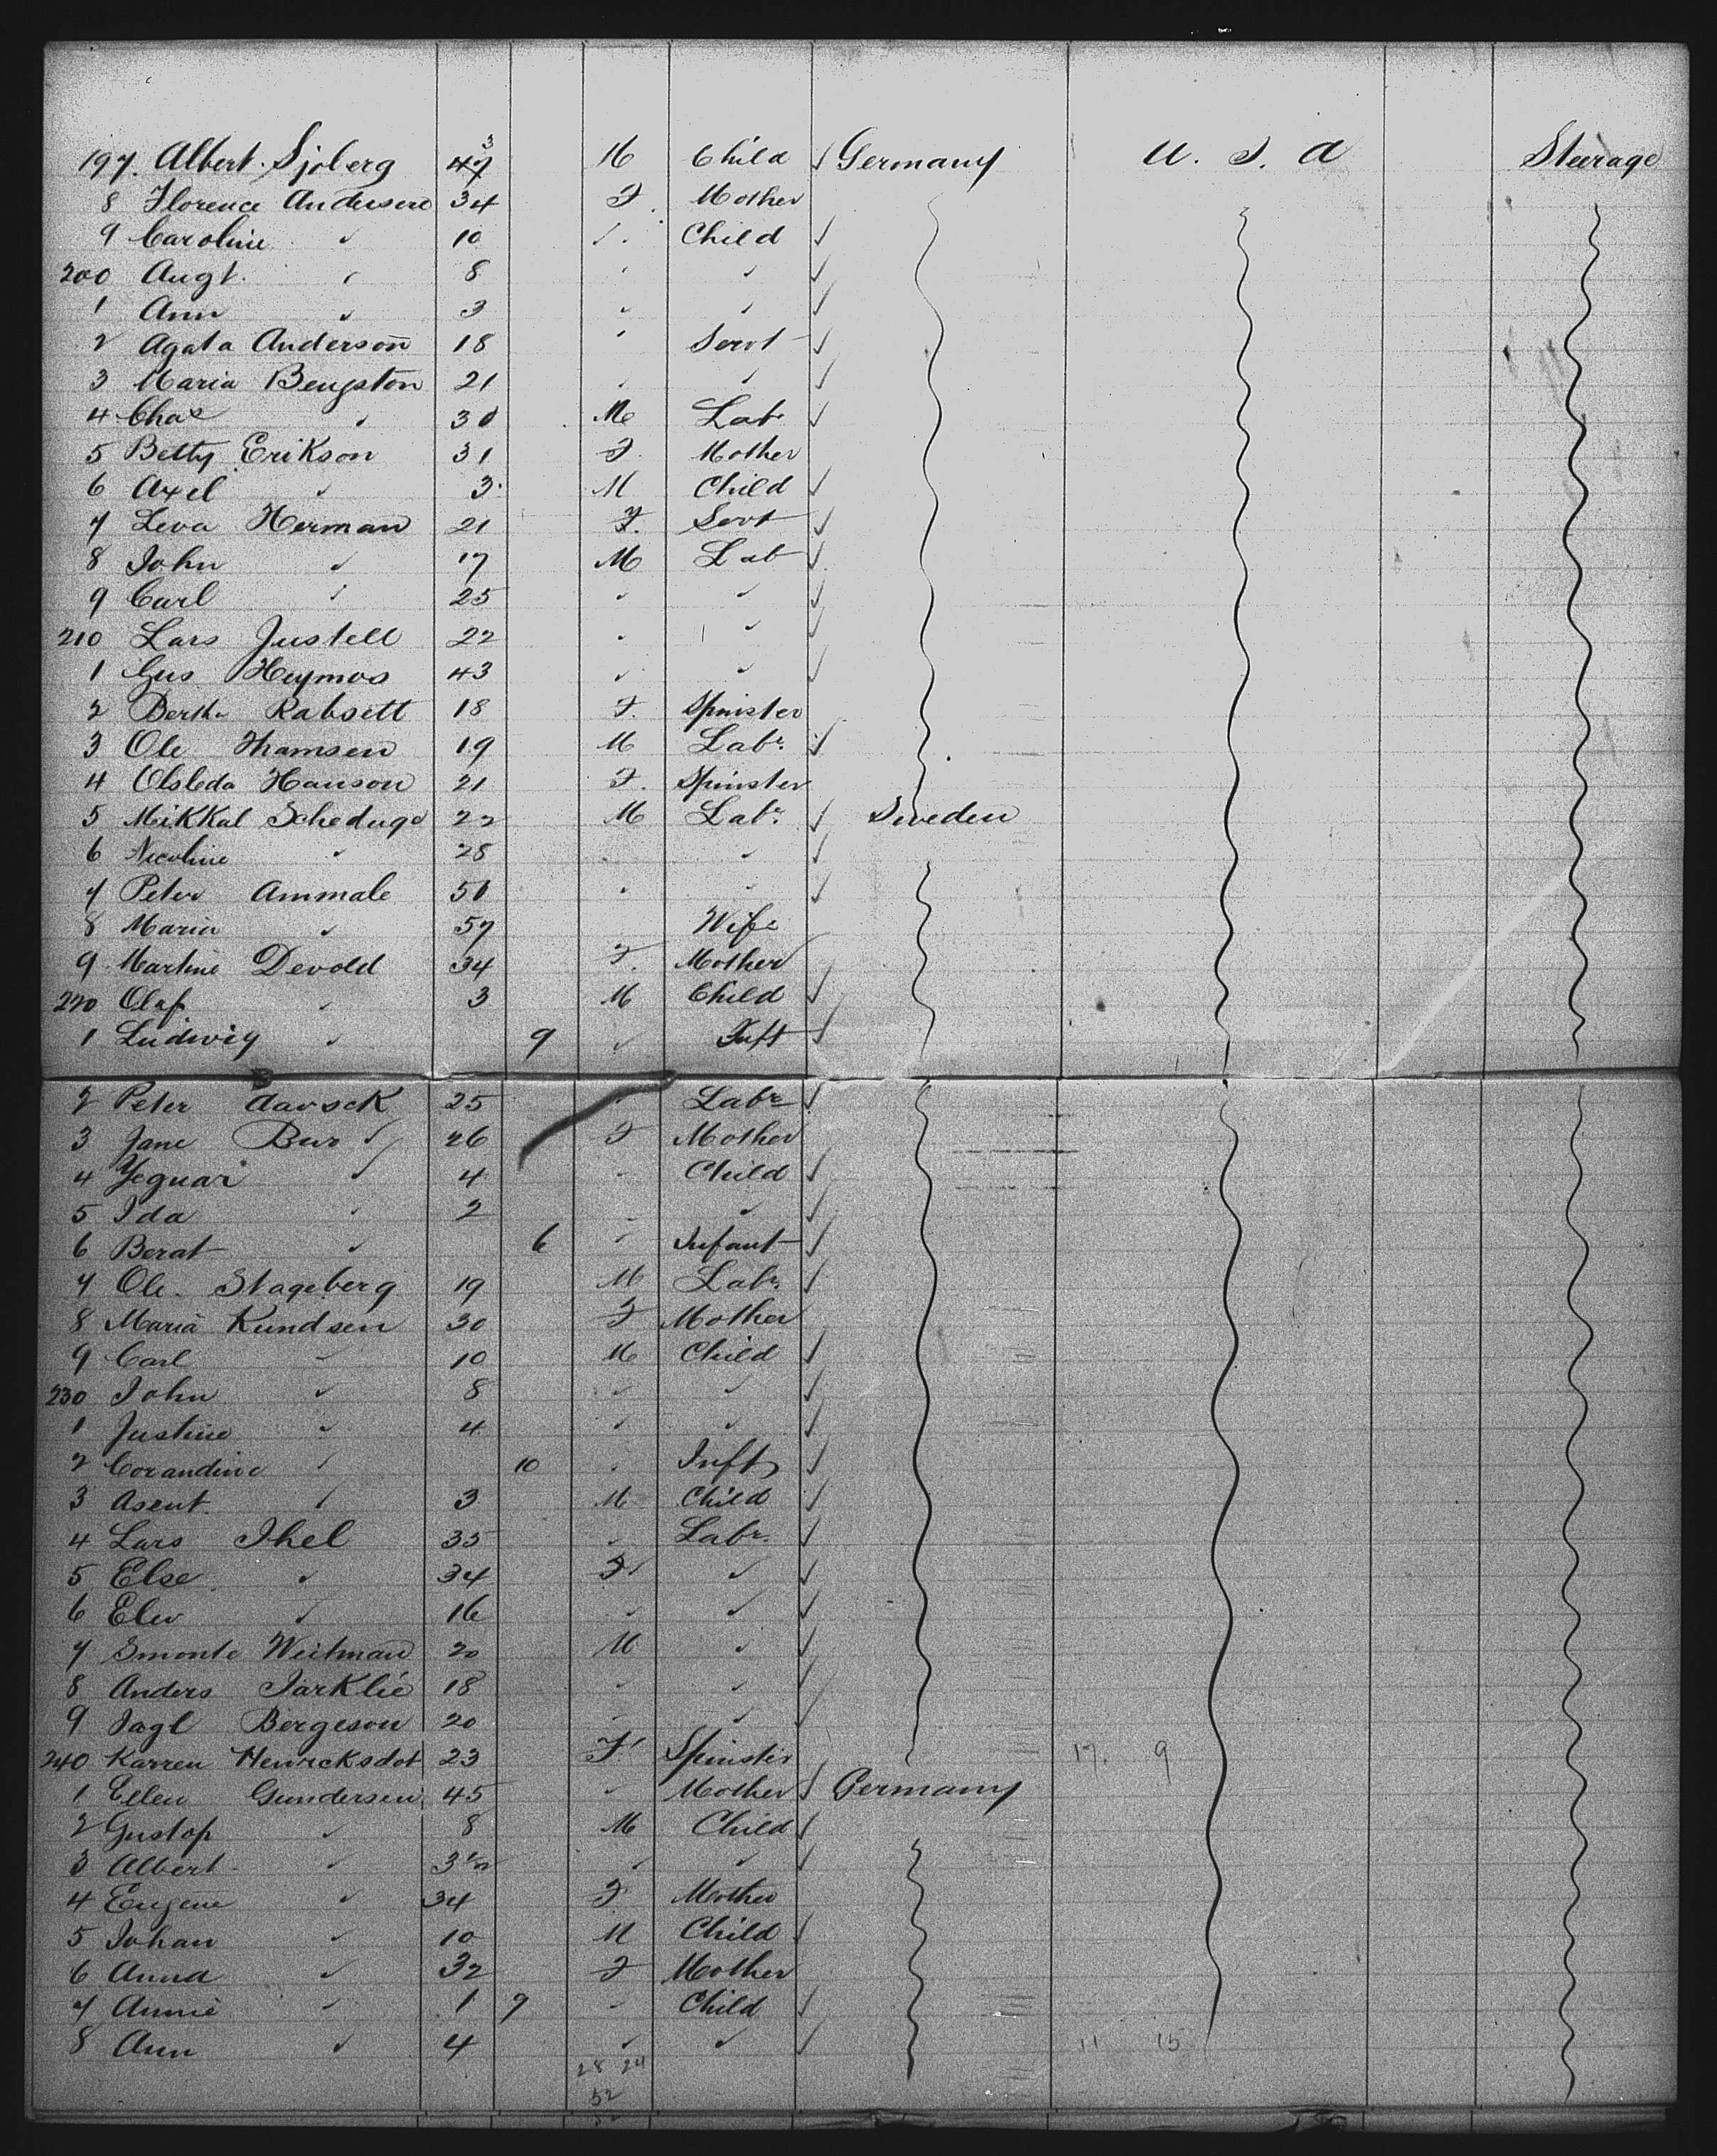 197. Albert Sjoberg 47 3 M Child √ Germany U. S. A Steerage
8 Florence Andersen 34 F. Mother
9 Caroline " 10 " Child √
200 Augt. " 8 " " √
1 Ann " 3 " " √
2 Agata Anderson 18 " Servt √
3 Maria Bengston 21 " " √
4 Chas " 30 M Lab √
5 Betty Erikson 31 F. Mother
6 Axel " 3 M Child √
7 Leva Herman 21 F. Servt √
8 John " 17 M Lab √
9 Carl " 25 " " √
210 Lars Justell 22 " " √
1 Gus Heymos 43 " " √
2 Bertha Rabsett 18 F. Spinster
3 Ole Thamsen 19 M Labr. √
4 Olsleda Hanson 21 F. Spinster
5 Mikkal Schedugd 22 M Labr. √ Sweden
6 Nicoline " 28 " " √
7 Peter Ammale 50 " " √
8 Maria " 57 Wife
9 Martine Devold 34 F. Mother
220 Olaf " 3 M Child √
1 Ludwig " 9 " Inft √
2 Peter Aavsck 25 " Labr √
3 Jane Buo √ 26 F Mother
4 Yeguar " 4 " Child √
5 Ida " 2 " " √
6 Berat " 6 " Infant √
7 Ole. Stageberg 19 M Labr. √
8 Maria Kundsen 30 F Mother
9 Carl " 10 M Child √
230 John " 8 " " √
1 Justine " 4 " " √
2 Corandine " 10 " Inft √
3 Asent " 3 M Child √
4 Lars Ihel 35 " Labr. √
5 Else " 34 F " √
6 Elev " 16 " " √
7 Smonte Weitman 20 M " √
8 Anders Jarklie 18 " " √
9 Jagl Bergeson 20 " " √
240 Karren Henricksdot 23 F. Spinster 17. 9
1 Ellen Gundersen 45 " Mother √ Germany
2 Gustop " 8 M Child √
3 Albert " 3½ " " √
4 Eugene " 34 F Mother
5 Johan " 10 M Child √
6 Anna " 32 F Mother
7 Annie " 1 9 " Child √
8 Ann " 4 " " √ 11 15
28 24
52